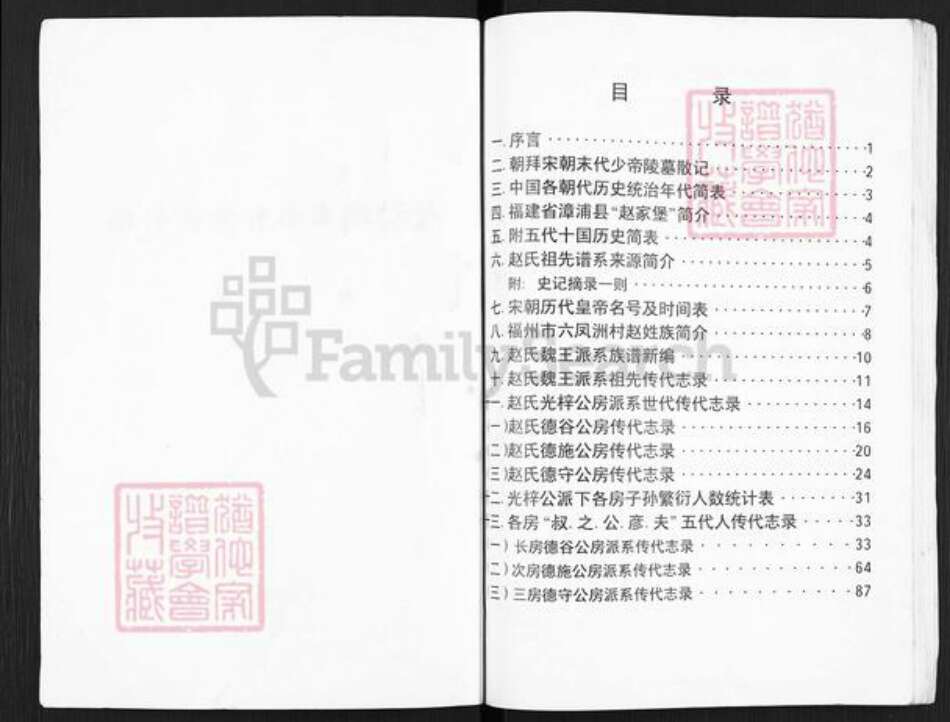 目 录
一. 序言 1
二. 朝拜宋朝末代少帝陵墓散记 2
三. 中国各朝代历史统治年代简表 3
四. 福建省漳浦县“赵家堡”简介 4
五. 附五代十国历史简表 4
六. 赵氏祖先谱系来源简介 5
附: 史记摘录一则 6
七. 宋朝历代皇帝名号及时间表 7
八. 福州市六凤洲村赵姓族简介 8
九. 赵氏魏王派系族谱新编 10
十. 赵氏魏王派系祖先传代志录 11
一. 赵氏光梓公房派系世代传代志录 14
一)赵氏德谷公房传代志录 16
二)赵氏德施公房传代志录 20
三)赵氏德守公房传代志录 24
十二. 光梓公派下各房子孙繁衍人数统计表 31
十三. 各房“叔. 之. 公. 彦. 夫”五代人传代志录 33
一) 长房德谷公房派系传代志录 33
二) 次房德施公房派系传代志录 64
三) 三房德守公房派系传代志录 87
FamilySearch